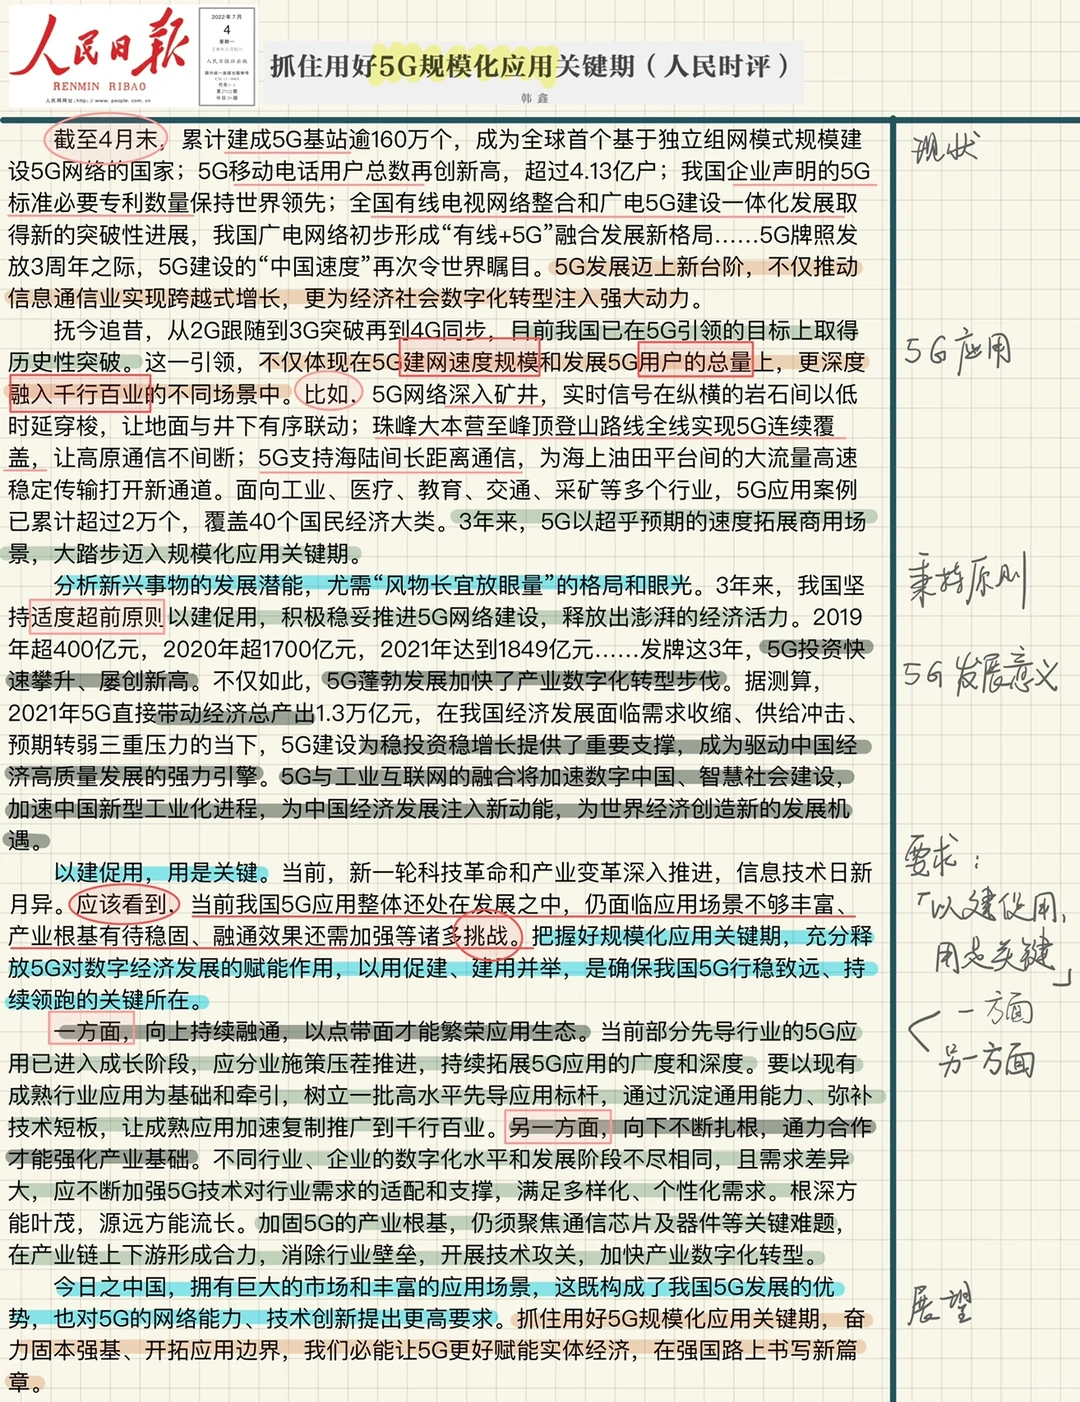 人民日报
RENMIN RIBAO
人民网网址:http://www.people.com.cn
2022年7月
4
星期一
人民日报社出版
抓住用好5G规模化应用关键期（人民时评）
韩鑫
截至4月末，累计建成5G基站逾160万个，成为全球首个基于独立组网模式规模建
设5G网络的国家；5G移动电话用户总数再创新高，超过4.13亿户；我国企业声明的5G
标准必要专利数量保持世界领先；全国有线电视网络整合和广电5G建设一体化发展取
得新的突破性进展，我国广电网络初步形成“有线+5G”融合发展新格局……5G牌照发
放3周年之际，5G建设的“中国速度”再次令世界瞩目。5G发展迈上新台阶，不仅推动
信息通信业实现跨越式增长，更为经济社会数字化转型注入强大动力。
现状
抚今追昔，从2G跟随到3G突破再到4G同步，目前我国已在5G引领的目标上取得
历史性突破。这一引领，不仅体现在5G建网速度规模和发展5G用户的总量上，更深度
融入千行百业的不同场景中。比如，5G网络深入矿井，实时信号在纵横的岩石间以低
时延穿梭，让地面与井下有序联动；珠峰大本营至峰顶登山路线全线实现5G连续覆
盖，让高原通信不间断；5G支持海陆间长距离通信，为海上油田平台间的大流量高速
稳定传输打开新通道。面向工业、医疗、教育、交通、采矿等多个行业，5G应用案例
已累计超过2万个，覆盖40个国民经济大类。3年来，5G以超乎预期的速度拓展商用场
景，大踏步迈入规模化应用关键期。
5G应用
分析新兴事物的发展潜能，尤需“风物长宜放眼量”的格局和眼光。3年来，我国坚
持适度超前原则以建促用，积极稳妥推进5G网络建设，释放出澎湃的经济活力。2019
年超400亿元，2020年超1700亿元，2021年达到1849亿元……发牌这3年，5G投资快
速攀升、屡创新高。不仅如此，5G蓬勃发展加快了产业数字化转型步伐。据测算，
2021年5G直接带动经济总产出1.3万亿元，在我国经济发展面临需求收缩、供给冲击、
预期转弱三重压力的当下，5G建设为稳投资稳增长提供了重要支撑，成为驱动中国经
济高质量发展的强力引擎。5G与工业互联网的融合将加速数字中国、智慧社会建设，
加速中国新型工业化进程，为中国经济发展注入新动能，为世界经济创造新的发展机
遇。
秉持原则
5G发展意义
以建促用，用是关键。当前，新一轮科技革命和产业变革深入推进，信息技术日新
月异。应该看到，当前我国5G应用整体还处在发展之中，仍面临应用场景不够丰富、
产业根基有待稳固、融通效果还需加强等诸多挑战。把握好规模化应用关键期，充分释
放5G对数字经济发展的赋能作用，以用促建、建用并举，是确保我国5G行稳致远、持
续领跑的关键所在。
要求：
「以建促用，
用是关键」
一方面，向上持续融通，以点带面才能繁荣应用生态。当前部分先导行业的5G应
用已进入成长阶段，应分业施策压茬推进，持续拓展5G应用的广度和深度。要以现有
成熟行业应用为基础和牵引，树立一批高水平先导应用标杆，通过沉淀通用能力、弥补
技术短板，让成熟应用加速复制推广到千行百业。另一方面，向下不断扎根，通力合作
才能强化产业基础。不同行业、企业的数字化水平和发展阶段不尽相同，且需求差异
大，应不断加强5G技术对行业需求的适配和支撑，满足多样化、个性化需求。根深方
能叶茂，源远方能流长。加固5G的产业根基，仍须聚焦通信芯片及器件等关键难题，
在产业链上下游形成合力，消除行业壁垒，开展技术攻关，加快产业数字化转型。
一方面
另一方面
今日之中国，拥有巨大的市场和丰富的应用场景，这既构成了我国5G发展的优
势，也对5G的网络能力、技术创新提出更高要求。抓住用好5G规模化应用关键期，奋
力固本强基、开拓应用边界，我们必能让5G更好赋能实体经济，在强国路上书写新篇
章。
展望